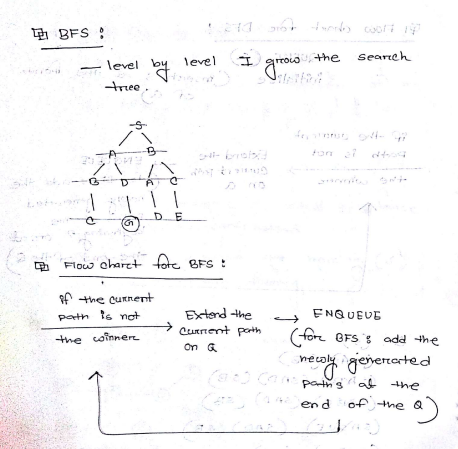 BFS :
— level by level I grow the search
tree.
S
A B
B D A C
C G D E
Flow chart for BFS :
If the current
path is not
the winner
Extend the
current path
on Q
ENQUEUE
(for BFS : add the
newly generated
paths at the
end of the Q)